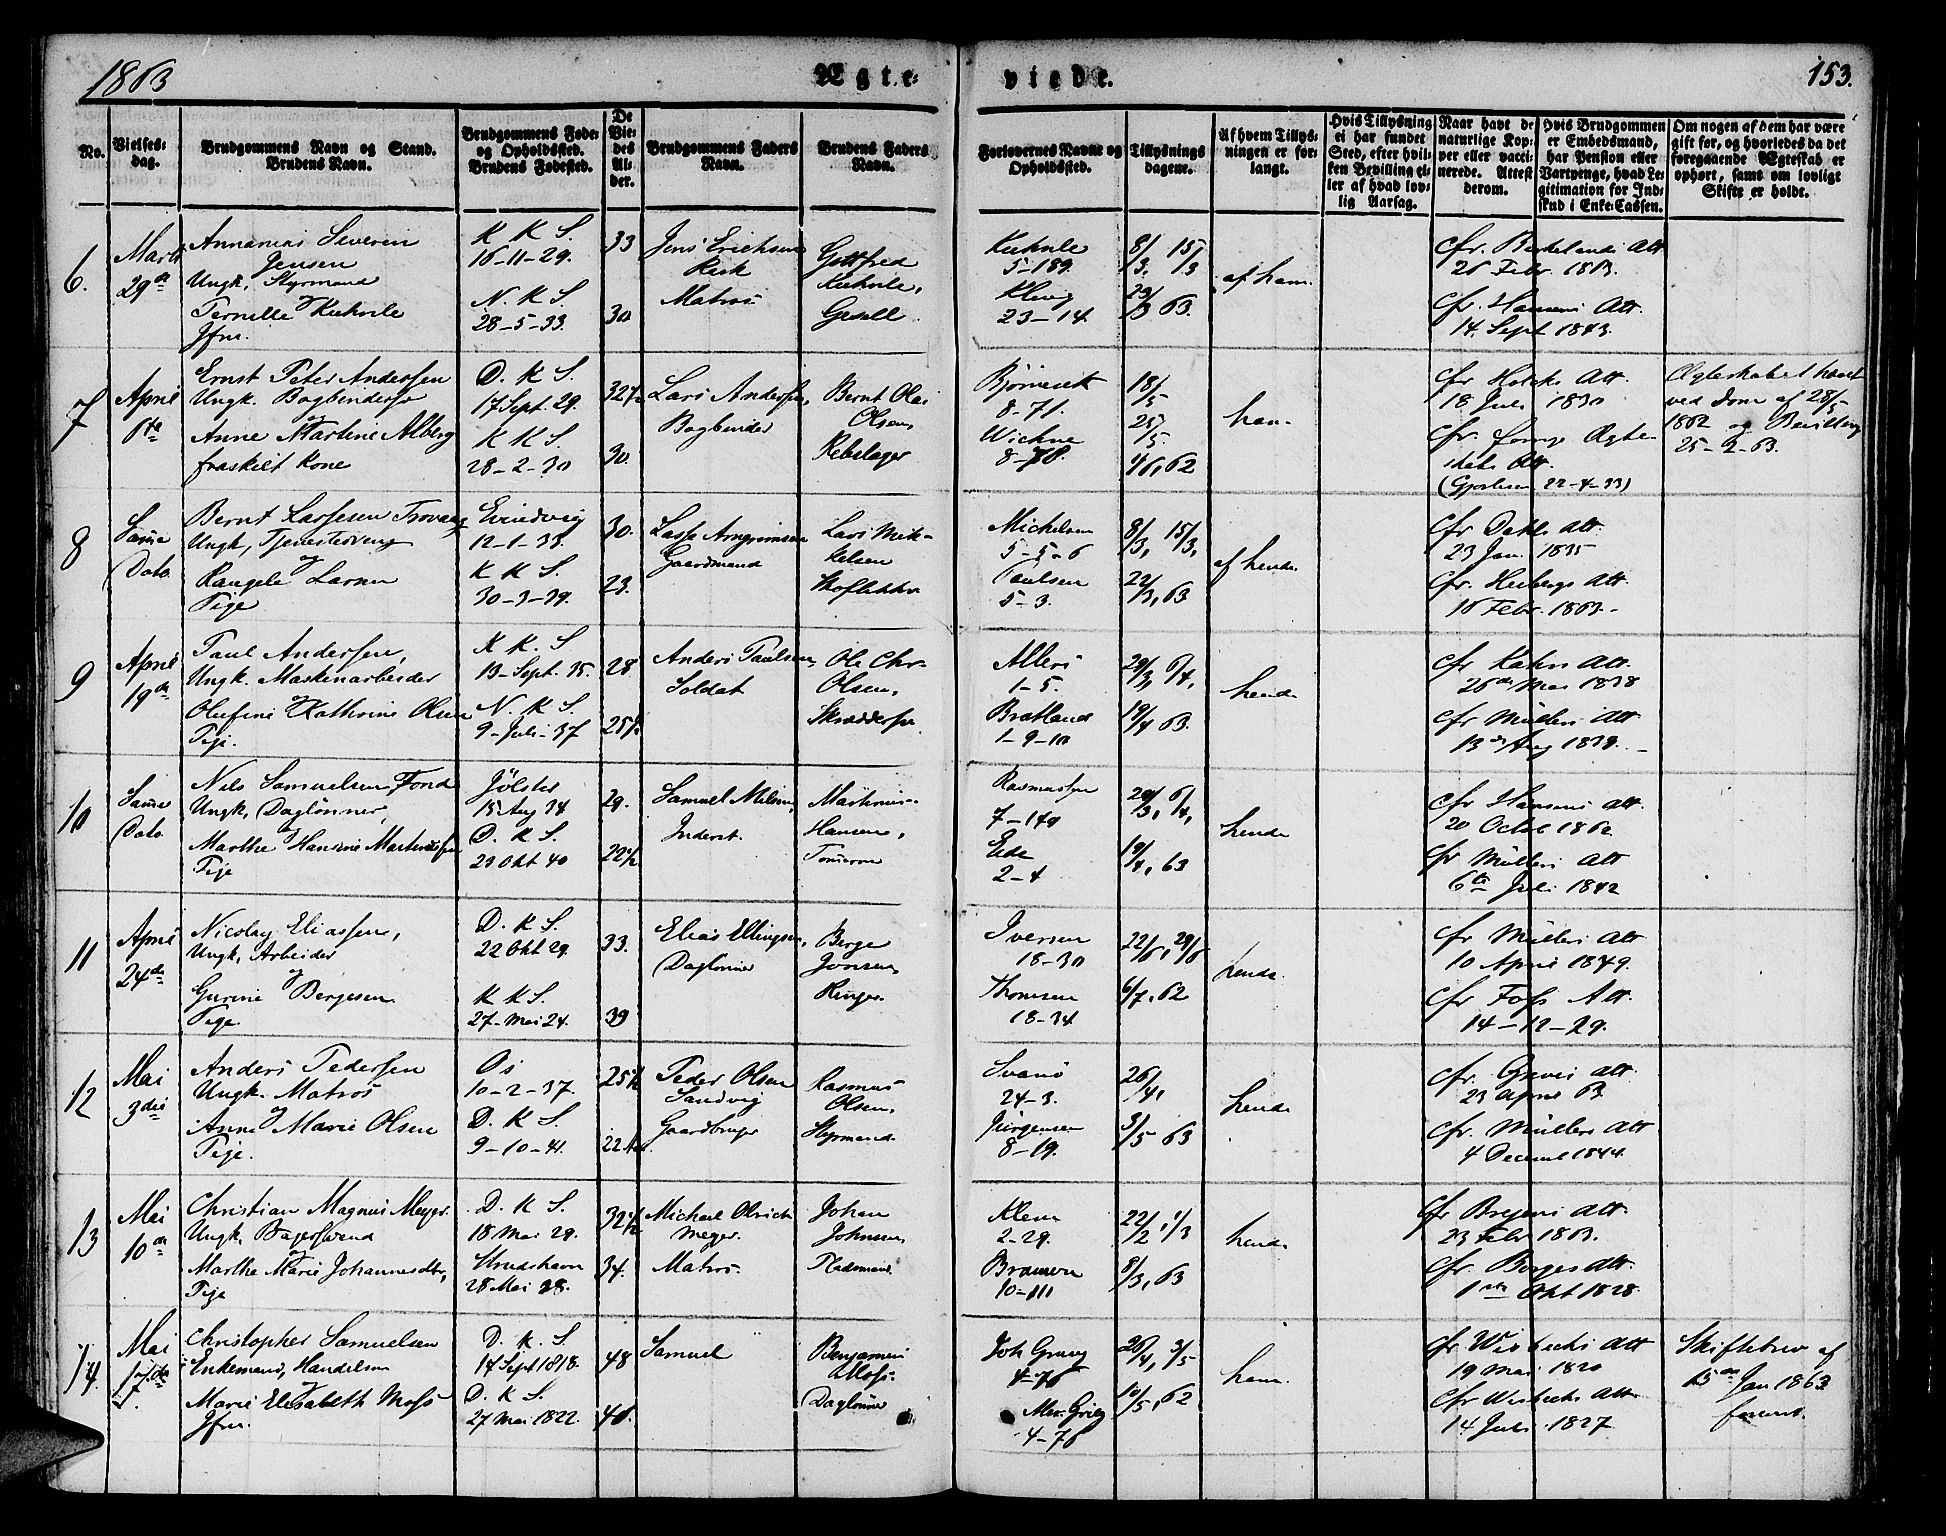 1863
Ægte-
viede.
153.
No.
Vielses-
dag.
Brudgommens Navn og Stand.
Brudens Navn.
Brudgommens Føde-
og Opholdssted.
Brudens Fødested.
De
Vie-
des
Al-
der.
Brudgommens Faders
Navn.
Brudens Faders
Navn.
Forlovernes Navne og
Opholdssted.
Tillysnings
dagene.
Af hvem Tillys-
ningen er for-
langt.
Hvis Tillysning
ei har fundet
Sted, efter hvil-
ken Bevilling el-
ler af hvad lov-
lig Aarsag.
Naar havt de
naturlige Kop-
per eller vacci-
nerede. Attest
derom.
Hvis Brudgommen
er Embedsmand,
har Pension eller
Vartpenge, hvad Le-
gitimation for Ind-
skud i Enke-Cassen.
Om nogen af dem har være
gift før, og hvorledes da det
foregaaende Ægteskab er
ophørt, samt om lovligt
Skifte er holdt.
6.
Marts
29de
Annanias Severin
Jensen
Ungk, Styrmand
og
Pernille Kuhnle
Jfru.
K K S.
16-11-29.
N. K S.
28-5-33.
33
30
Jens Erichsen
Kirk
Matros
Gottfred
Kuhnle,
Gesell.
Kuhnle
5-189.
Klevg
23-14.
8/3. 15/3
29/3 63.
af ham.
cfr. Birkelands Att
26 Febr. 1863.
cfr. Hansens Att.
14. Sept 1843.
7
April
6te
Ernst Peter Anderssen
Ungk. Bogbindersv
og
Anne Martine Alberg
fraskilt Kone
D. K S.
17 Sept. 29.
K K S.
28-2-30
32½
30.
Lars Andersen,
Bogbinder
Bernt Olai
Olsen,
Rebslager
Bjørnevik
8-71.
Wichne
8-78.
18/5
25/5.
1/6, 62
ham
cfr Holcks Att.
18 Juli 1830
cfr. Ægte-
skabs Att.
22-4-33)
Ægteskabet hævet
ved Dom af 28/5
1862 og Bevilling
25-2-63.
8
Samme
Dato
Bernt Lassesen Trovaag
Ungk, Tjenestedreng
og
Rangele Larsen
Pige
Evindvig
12-1-33.
K K S.
30-3-39.
30.
23.
Lasse Arngrimsen
Gaardmand
Lars Mik-
kelsen
Michelsen
5-5-6
Paulsen
5-3.
8/3, 15/3,
22/3, 63
af hende.
cfr Dahls Att.
23 Jan. 1835
cfr. Heibergs Att.
16 Febr. 1863.-
9
April
19de
Paul Andersen,
Ungk. Maskinarbeider
og
Olufine Kathrine Olsen
Pige.
K K. S
13-Sept. 35.
N. K S.
9-Juli-37
28
25½
Anders Paulsen,
Soldat
Ole Chr.
Olsen,
Skræddersv
Albers
1-5.
Bratland
1-9-10
29/3, 6/4,
19/4 63.
hende
cfr Kahrs Att.
26de Mai 1838
cfr Müllers Att
13de Aug 1839.-
10
Samme
Dato.
Nils Samuelsen Fond
Ungk, Daglønner,
og
Marthe Hansine Martinussen
Pige
Jølster
15 Aug 34
D. K S.
20 Okt 40
29.
22½
Samuel Nilsen,
Inderst.
Martinus
Hansen,
Tømmerm
Rasmussen
7-149
Eide
2-4
29/3, 6/4,
19/4, 63
hende
cfr Hansens Att.
20 Octob 1862
cfr Müllers Att
6te Juli 1842
11
April
24de
Nicolay Eliassen,
Ungk, Arbeider
og
Gurine Bergesen
Pige.
D. K S.
22 Okt 29.
K K S.
27-Mai 24.
33.
39
Elias Ellingsen,
Dagløner
Berge
Jonsen
Ringer.
Iversen
18-30
Thomsen
18-34
22/6, 29/6
6/7, 62
hende.
cfr Müllers Att
10 April 1849.
cfr Foss Att.
14-12-29.
12
Mai
3die
Anders Pedersen
Ungk. Matros
og
Anne Marie Olsen
Pige.
Os
10-2-37.
D. K S.
9-10-41.
25½
22
Peder Olsen
Sandvig
Gaardbruger
Rasmus
Olsen,
Styrmand
Svanø
24-3.
Jürgensen
8-19.
26/4,
3/5 63
hende
cfr. Greves Att.
23 April 63
cfr. Müllers Att
4 Decemb 1844.
13
Mai
10de
Christian Magnus Meyer.
Ungk, Bagersvend
og
Marthe Marie Johannesdtr,
Pige
D. K S.
18 Mai 29.
Strudshavn
28 Mai 28.
32½
34.
Michael Olrich
Meyer.
Matros.
Johan
Johnsen
Pladsmand.
Klem
2-29.
Bramer
10-111
22/2, 1/3
8/3, 63
hende
cfr Brejens Att.
23 Febr 1863.
cfr. Borges Att.
1ste Okt 1828.
14.
Mai
17de
Christopher Samuelsen
Enkemand, Handelsm
og
Marie Elisabeth Moss
Jfru.
D. K. S
14 Sept 1818.
D. K S.
27 Mai 1822.
48
40.
Samuel
Benjamin
Moss.
Dagløner
Joh Grieg
4-76
Mor. Grieg
4-76
26/4, 3/5
10/5, 62
ham.
cfr Wisbechs Att
19 Mai 1820
cfr Wisbechs Att.
14 Juli 1827
Skiftebrev af
15de Jan 1863
forevist.